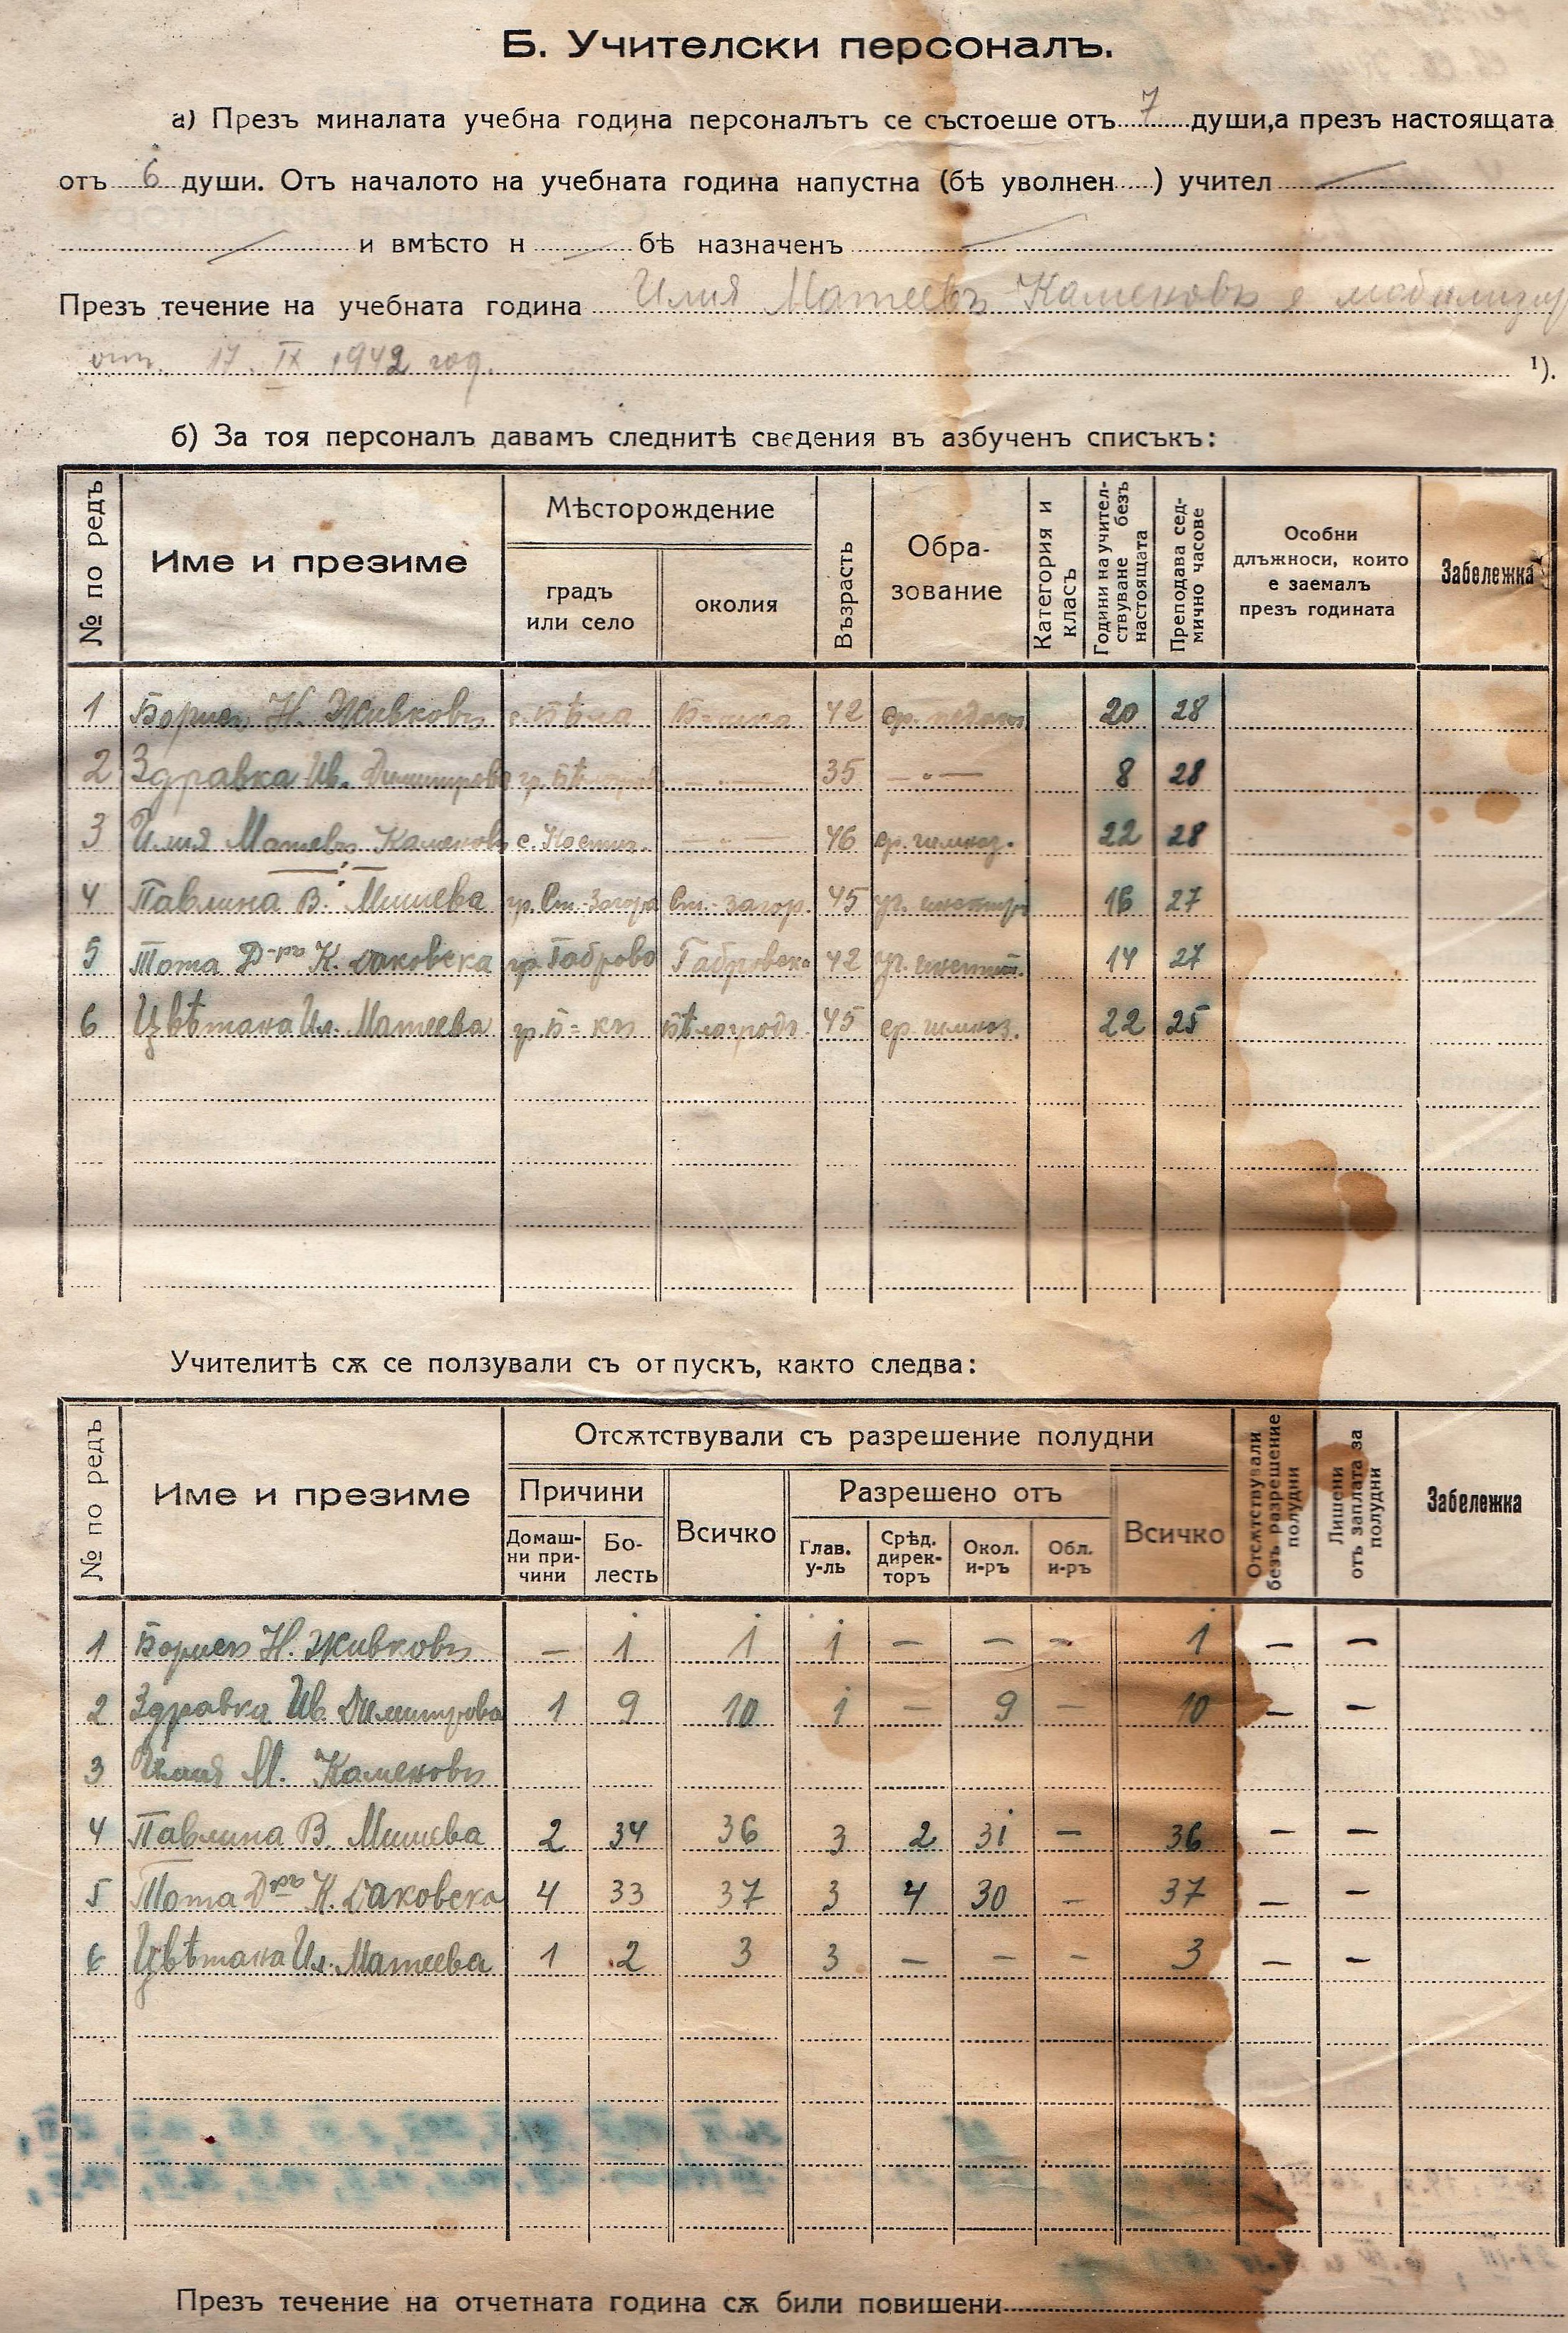 Б. Учителски персоналъ.
а) Презъ миналата учебна година персоналътъ се състоеше отъ 7 души, а презъ настоящата
отъ 6 души. Отъ началото на учебната година напустна (бѣ уволнен.....) учител
и вмѣсто н бѣ назначенъ
Презъ течение на учебната година Илия Матеевъ Каменовъ е мобилизир
отъ 17. IX 1942 год. ¹).
б) За тоя персоналъ давамъ следнитѣ сведения въ азбученъ списъкъ:
№ по редъ Име и презиме Мѣсторождение градъ или село околия Възрасть Образование Категория и класъ Години на учителствуване безъ настоящата Преподава седмично часове Особни длъжности, които е заемалъ презъ годината Забележка
1 Борисъ Н. Живковъ с. Бѣла 42 ср. педаг. 20 28
2 Здравка Ив. Димитрова 35 —"— 8 28
3 Илия Матевъ Каменовъ 46 ср. гимназ. 22 28
4 Павлина В. Мишева гр. Ст.-Загора Ст.-загор. 45 уч. 16 27
5 Тота Д-ръ К. Даковска гр. Габрово Габровска 42 уч. 14 27
6 Цвѣтана Ил. Матеева гр. Б=къ 45 ср. гимназ. 22 25
Учителитѣ сѫ се ползували съ отпускъ, както следва:
№ по редъ Име и презиме Отсѫтствували съ разрешение полудни Причини Домашни причини Болесть Всичко Разрешено отъ Глав. у-ль Срѣд. директоръ Окол. и-ръ Обл. и-ръ Всичко Отсѫтствували безъ разрешение полудни Лишени отъ заплата за полудни Забележка
1 Борисъ Н. Живковъ — 1 1 1 — — — 1 — —
2 Здравка Ив. Димитрова 1 9 10 1 — 9 — 10 — —
3 Илия М. Каменовъ
4 Павлина В. Мишева 2 34 36 3 2 31 — 36 — —
5 Тота Д-ръ К. Даковска 4 33 37 3 4 30 — 37 — —
6 Цвѣтана Ил. Матеева 1 2 3 3 — — — 3 — —
Презъ течение на отчетната година сѫ били повишени